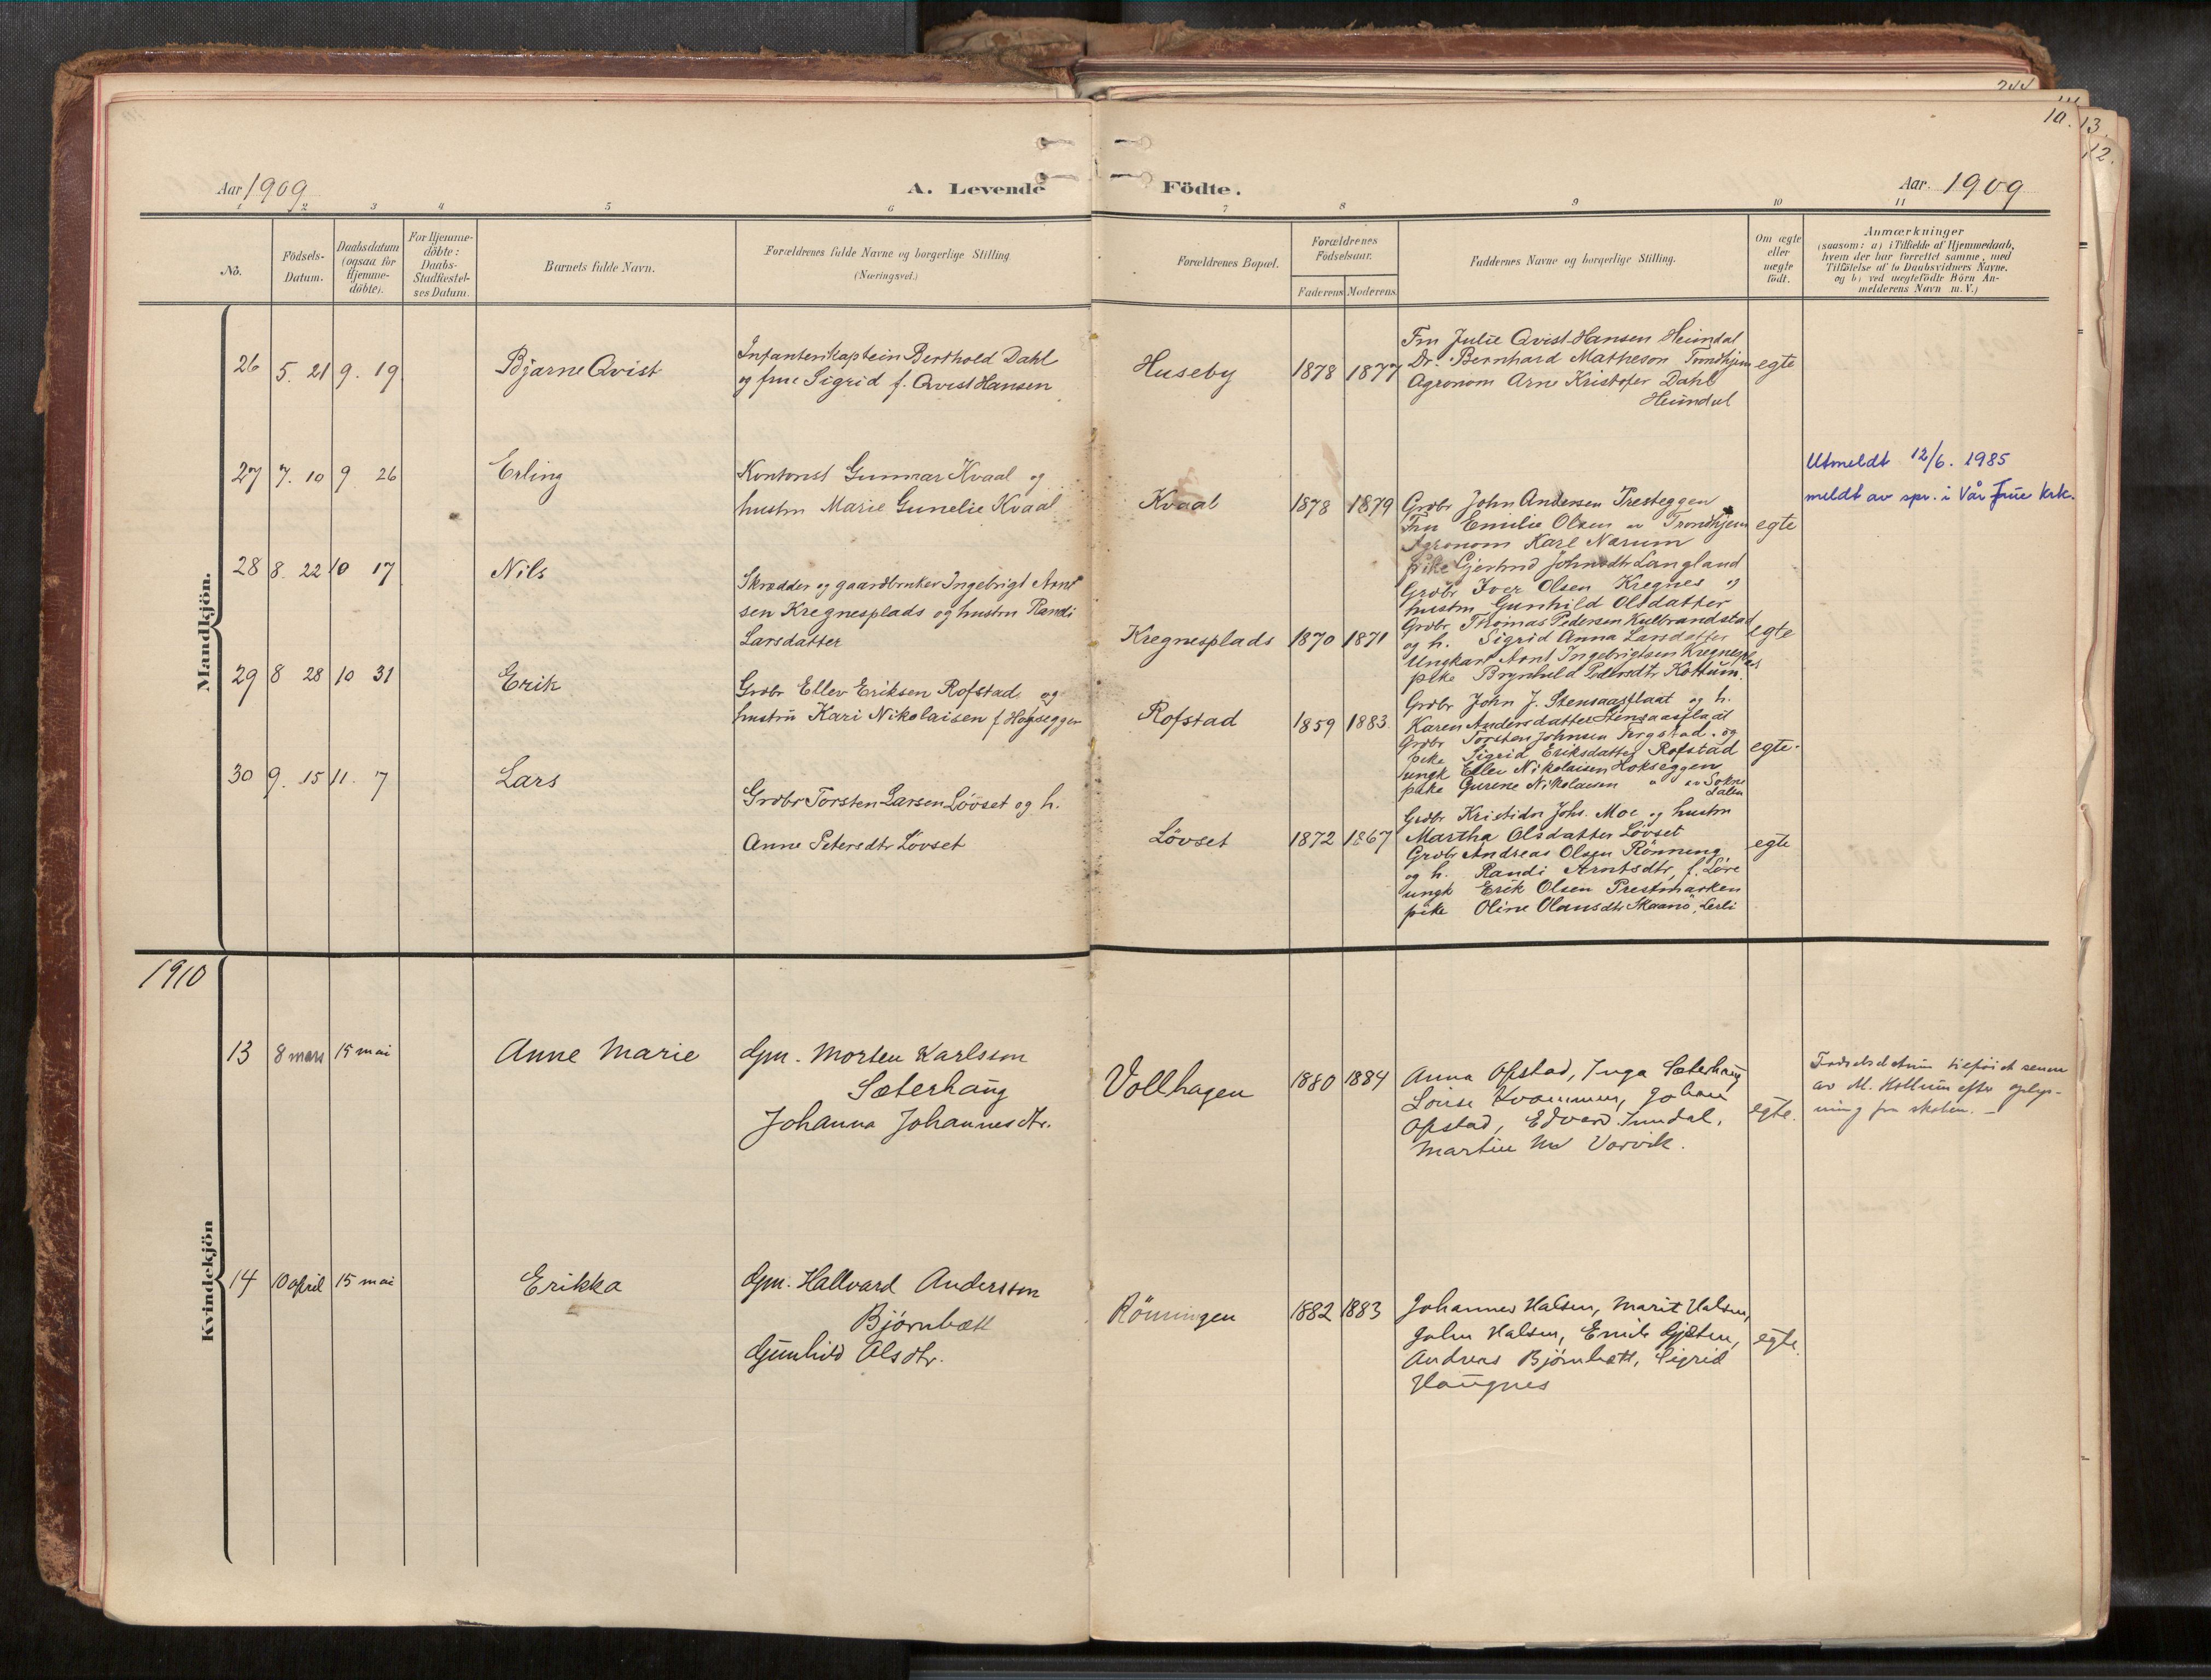 244
10.
13.
12.
Aar 1909
A. Levende Födte.
Aar. 1909
1 2 3 4 5 6 7 8 9 10 11
No.
Födsels-
Datum.
Daabsdatum
(ogsaa for
Hjemme-
döbte).
For Hjemme-
döbte:
Daabs-
Stadfæstel-
ses Datum.
Barnets fulde Navn.
Forældrenes fulde Navne og borgerlige Stilling
(Næringsvei.)
Forældrenes Bopæl.
Forældrenes
Födselsaar.
Faderens Moderens.
Faddernes Navne og borgerlige Stilling.
Om ægte
eller
uægte
födt.
Anmærkninger
(saasom: a) i Tilfælde af Hjemmedaab,
hvem der har forrettet samme, med
Tilföielse af to Daabsvidners Navne.
og b) ved uægtefödte Börn An-
melderens Navn m. V.)
Mandkjön.
26 5. 21 9. 19 Bjarne Qvist
Infanterikaptein Berthold Dahl
og frue Sigrid f. Qvist Hansen
Huseby 1878 1877
Fru Julie Qvist-Hansen Heimdal
Dr. Bernhard Matheson Trondhjem
Agronom Arne Kristofer Dahl
Heimdal
egte
27 7. 10 9 26 Erling
Kontorist Gunnar Kvaal og
hustru Marie Gunelie Kvaal
Kvaal 1878 1879
Grdbr John Andersen Presteggen
Fru Emilie Olsen av Trondhjem
Agronom Karl Narum
pike Gjertrud Johnsdtr Langland
egte
Utmeldt 12/6. 1985
meldt av spr. i Vår Frue krk.
28 8. 22 10 17 Nils
Skrædder og gaardbruker Ingebrigt Arnt
sen Kregnesplads og hustru Randi
Larsdatter
Kregnesplads 1870 1871
Grdbr Iver Olsen Kregnes og
hustru Gunhild Olsdatter
Grdbr Thomas Pedersen Kulbrandstad
og h. Sigrid Anna Larsdatter
Ungkarl Arnt Ingebrigtsen Kregnespl
pike Brynhild Pedersdtr Kottum.
egte
29 8 28 10 31 Erik
Grdbr Ellev Eriksen Rofstad og
hustru Kari Nikolaisen f. Hogseggen
Rofstad 1859 1883.
Grdbr John J. Stensaasflaat og h.
Karen Andersdatter Stensaasflaat
Grdbr Torsten Johnsen Tergstad. og
pike Sigrid Eriksdatter Rofstad
ungk Ellev Nikolaisen Hokseggen
pike Gurine Nikolaisen " av Sokne
dalen
egte.
30 9. 15 11. 7 Lars
Grdbr Torsten Larsen Lövset og h.
Anne Petersdtr Lövset
Lövset 1872 1867
Grdbr Kristian Johs. Moe og hustru
Martha Olsdatter Lövset
Grdbr Andreas Olsen Rönning
og h. Randi Arntsdtr, f. Löre
ungk Erik Olsen Prestmarken
pike Oline Olausdtr Skaanö, Lerli
egte
1910
Kvindekjön
13 8 mars 15 mai Anne Marie
Gm. Morten Karlsson
Sæterhaug
Johanna Johannesdtr.
Vollhagen 1880 1884
Anna Opstad, Inga Sæterhaug
Louise Kvammen, Johan
Opstad, Edvard Inndal,
Martin Vorvik.
egte.
Fødselsdatum tilføiet senere
av M. Hollum efter oplys-
ning fra skolen. —
14 10 april 15 mai Erikka
Gm. Hallvard Andersson
Bjørnbætt
Gunhild Olsdtr.
Rönningen 1882 1883
Johannes Halsen, Marit Halsen,
John Halsen, Emil Gjetin,
Andreas Bjørnbætt, Sigrid
Haugnes
egte.